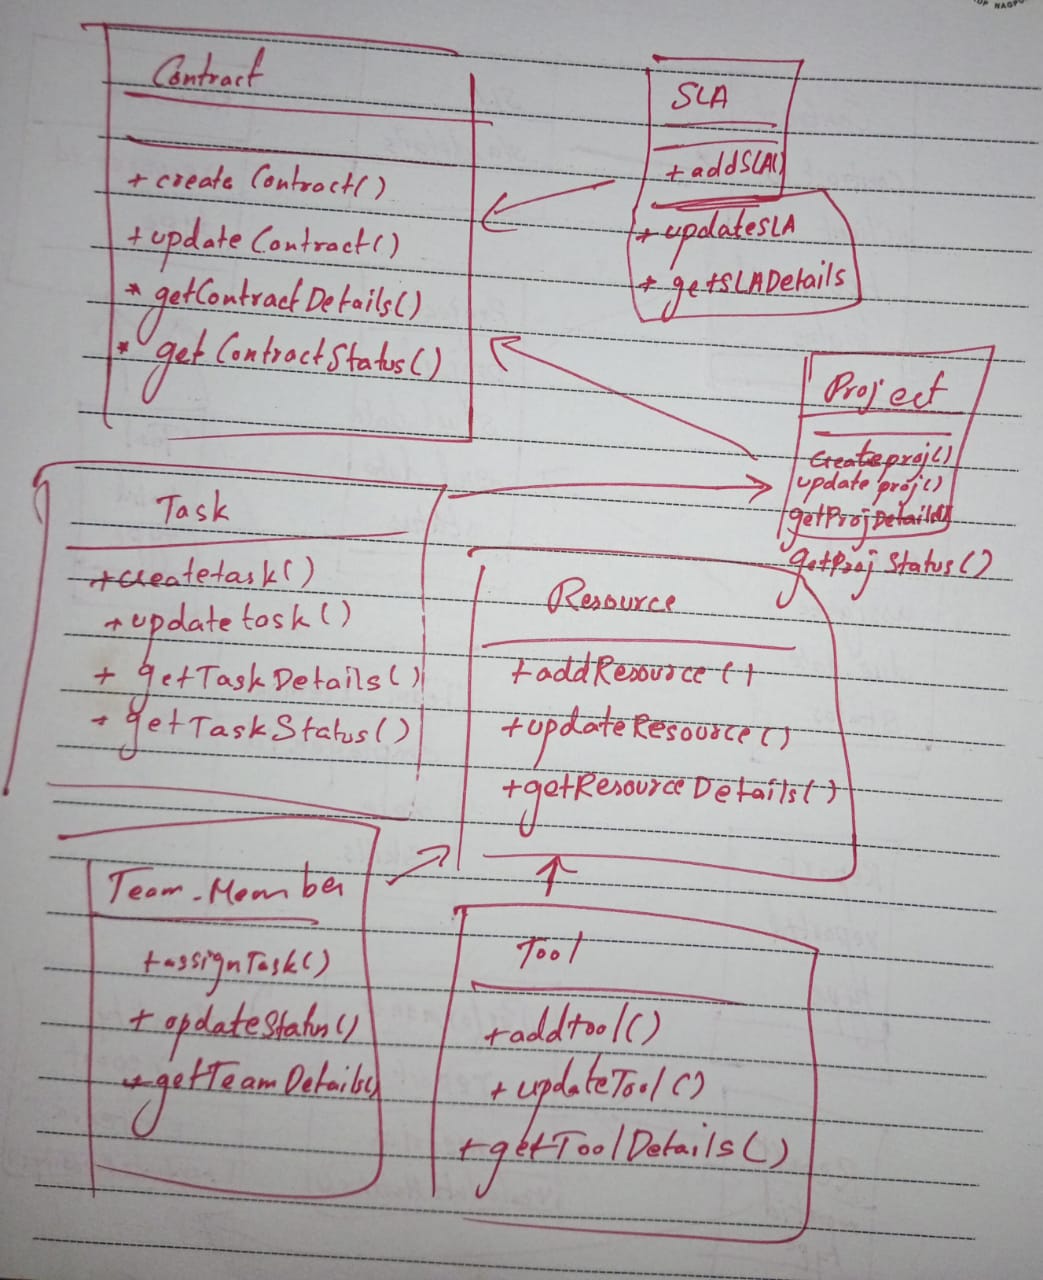 Contract
+ create Contract()
+ update Contract()
* getContractDetails()
* get ContractStatus()
SLA
+ addSLA()
+ updateSLA
* getSLADetails
Project
createproj()
update proj()
getProjDetails()
getProj Status()
Task
+createtask()
+ update task()
+ getTask Details()
+ getTaskStatus()
Resource
+ addResource()
+ updateResource()
+ getResource Details()
Team_Member
+ assignTask()
+ updateStatus()
+ getTeamDetails()
Tool
+ addtool()
+ updateTool()
+ getToolDetails()